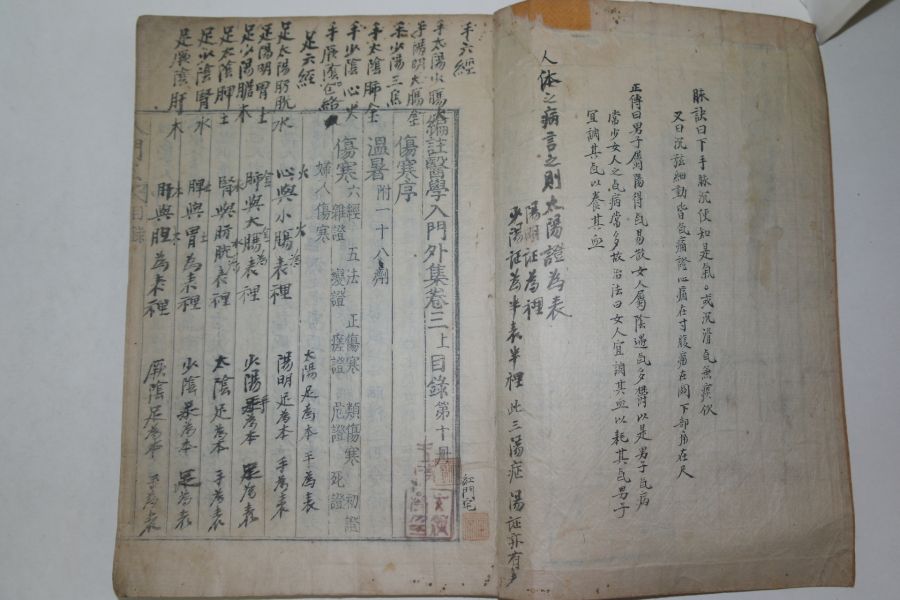 脉訣曰下手脉沉便知是氣。或沉滑氣無痰
又曰沉弦細動皆氣痛證心痛在寸腹痛在関下部在尺
正傳曰男子屬陽得氣易散女人屬陰遇氣多欝以是男子氣病
當少女人之氣病當多故治法曰女人宜調其血以耗其氣男子
宜調其氣以養其血
人体之病言之則太陽證為表
陽明証為裡
少陽証為半表半裡 此三陽症 陽証亦有
手六經
手太陽小膓火
手陽明大膓金
手少陽三焦
手太陰肺金
手少陰心火
手厥陰包絡
足六經
足太陽膀胱水
足陽明胃土
足少陽膽木
足太陰脾土
足少陰腎水
足厥陰肝木
編註醫學入門外集卷三上目錄第十冊
紅門宅
傷寒序
溫暑 附一十八劑
傷寒 六經 五法 正傷寒 類傷寒 初證
雜證 變證 瘥證 危證 死證
婦人傷寒
太陽足為本 手為表
心與小膓表裡 陽明足為本 手為表
肺與大膓為表裡 少陽手為本 足為表
腎與膀胱表裡 太陰足為本 手為表
脾與胃為表裡 少陰為本 足為表
肝與胆為表裡 厥陰足為本 手為表